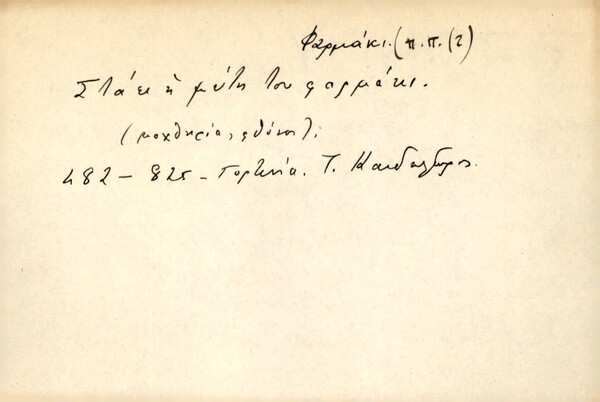 Φαρμάκι. (π.π. (2)
Στάει ἡ μύτη του φαρμάκι.
(μοχθηρία, φθόνος).
482 – 825 – Γορτυνία. Τ. Κανδηλῶρος.